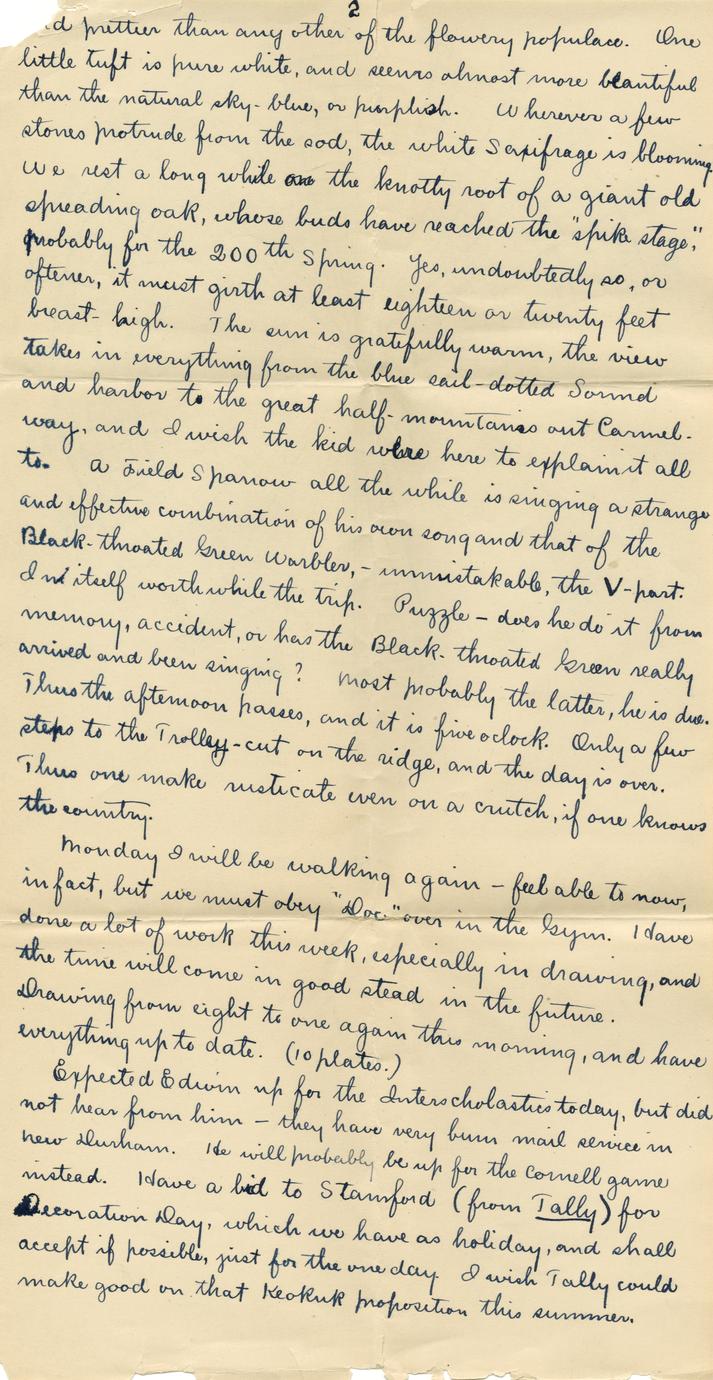 2
d prettier than any other of the flowery populace. One
little tuft is pure white, and seems almost more beautiful
than the natural sky-blue, or purplish. Wherever a few
stones protrude from the sod, the white Saxifrage is blooming.
We rest a long while on the knotty root of a giant old
spreading oak, whose buds have reached the "spike stage,"
probably for the 200th Spring. Yes, undoubtedly so, or
oftener, it must girth at least eighteen or twenty feet
breast-high. The sun is gratefully warm, the view
takes in everything from the blue sail-dotted Sound
and harbor to the great half-mountains out Carmel-
way, and I wish the kid were here to explain it all
to. A Field Sparrow all the while is singing a strange
and effective combination of his own song and that of the
Black-throated Green Warbler, - unmistakable, the V-part.
In itself worth while the trip. Puzzle - does he do it from
memory, accident, or has the Black-throated Green really
arrived and been singing? Most probably the latter, he is due.
Thus the afternoon passes, and it is five oclock. Only a few
steps to the Trolley-cut on the ridge, and the day is over.
Thus one make rusticate even on a crutch, if one knows
the country.
Monday I will be walking again - feel able to now,
in fact, but we must obey "Doc." over in the Gym. Have
done a lot of work this week, especially in drawing, and
the time will come in good stead in the future.
Drawing from eight to one again this morning, and have
everything up to date. (10 plates.)
Expected Edwin up for the Interscholastics today, but did
not hear from him - they have very bum mail service in
New Durham. He will probably be up for the Cornell game
instead. Have a bid to Stamford (from Tally) for
Decoration Day, which we have as holiday, and shall
accept if possible, just for the one day I wish Tally could
make good on that Keokuk proposition this summer.